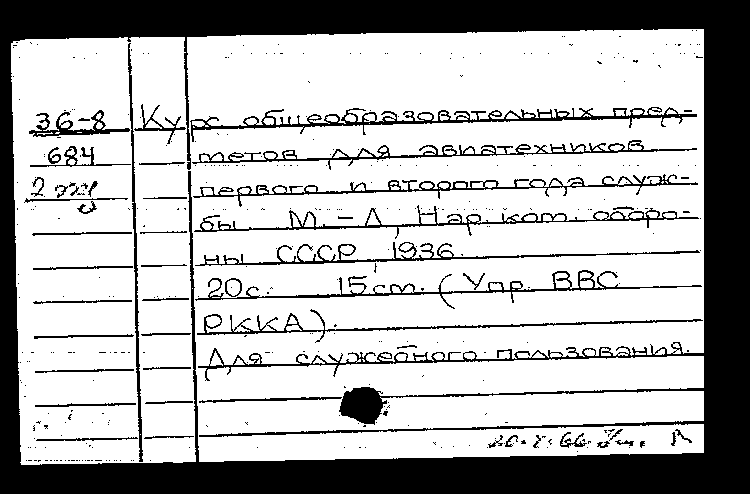 36-8 Курс общеобразовательных пред-
684 метов для авиатехников
2 экз первого и второго года служ-
бы. М.-Л, Нар. ком. оборо-
ны СССР, 1936.
20с. 15см. (Упр. ВВС
РККА).
Для служебного пользования.